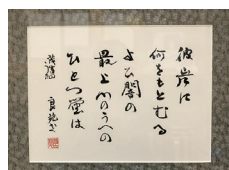 彼岸に
何をもとむる
よひ闇の
最上川のうへの
ひとつ蛍は